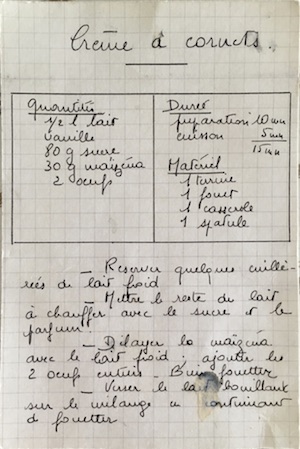 Crème à cornets.
Quantités
1/2 l lait
vanille
80 g sucre
30 g maïzena
2 oeufs
Durée
préparation 10 mn
cuisson 5 mn
15 mn
Matériel
1 terrine
1 fouet
1 casserole
1 spatule
_ Réserver quelques cuille-
rées de lait froid
_ Mettre le reste du lait
à chauffer avec le sucre et le
parfum.
_ Délayer la maïzena
avec le lait froid ; ajouter les
2 oeufs entiers. Bien fouetter
_ Verser le lait bouillant
sur le mélange en continuant
à fouetter